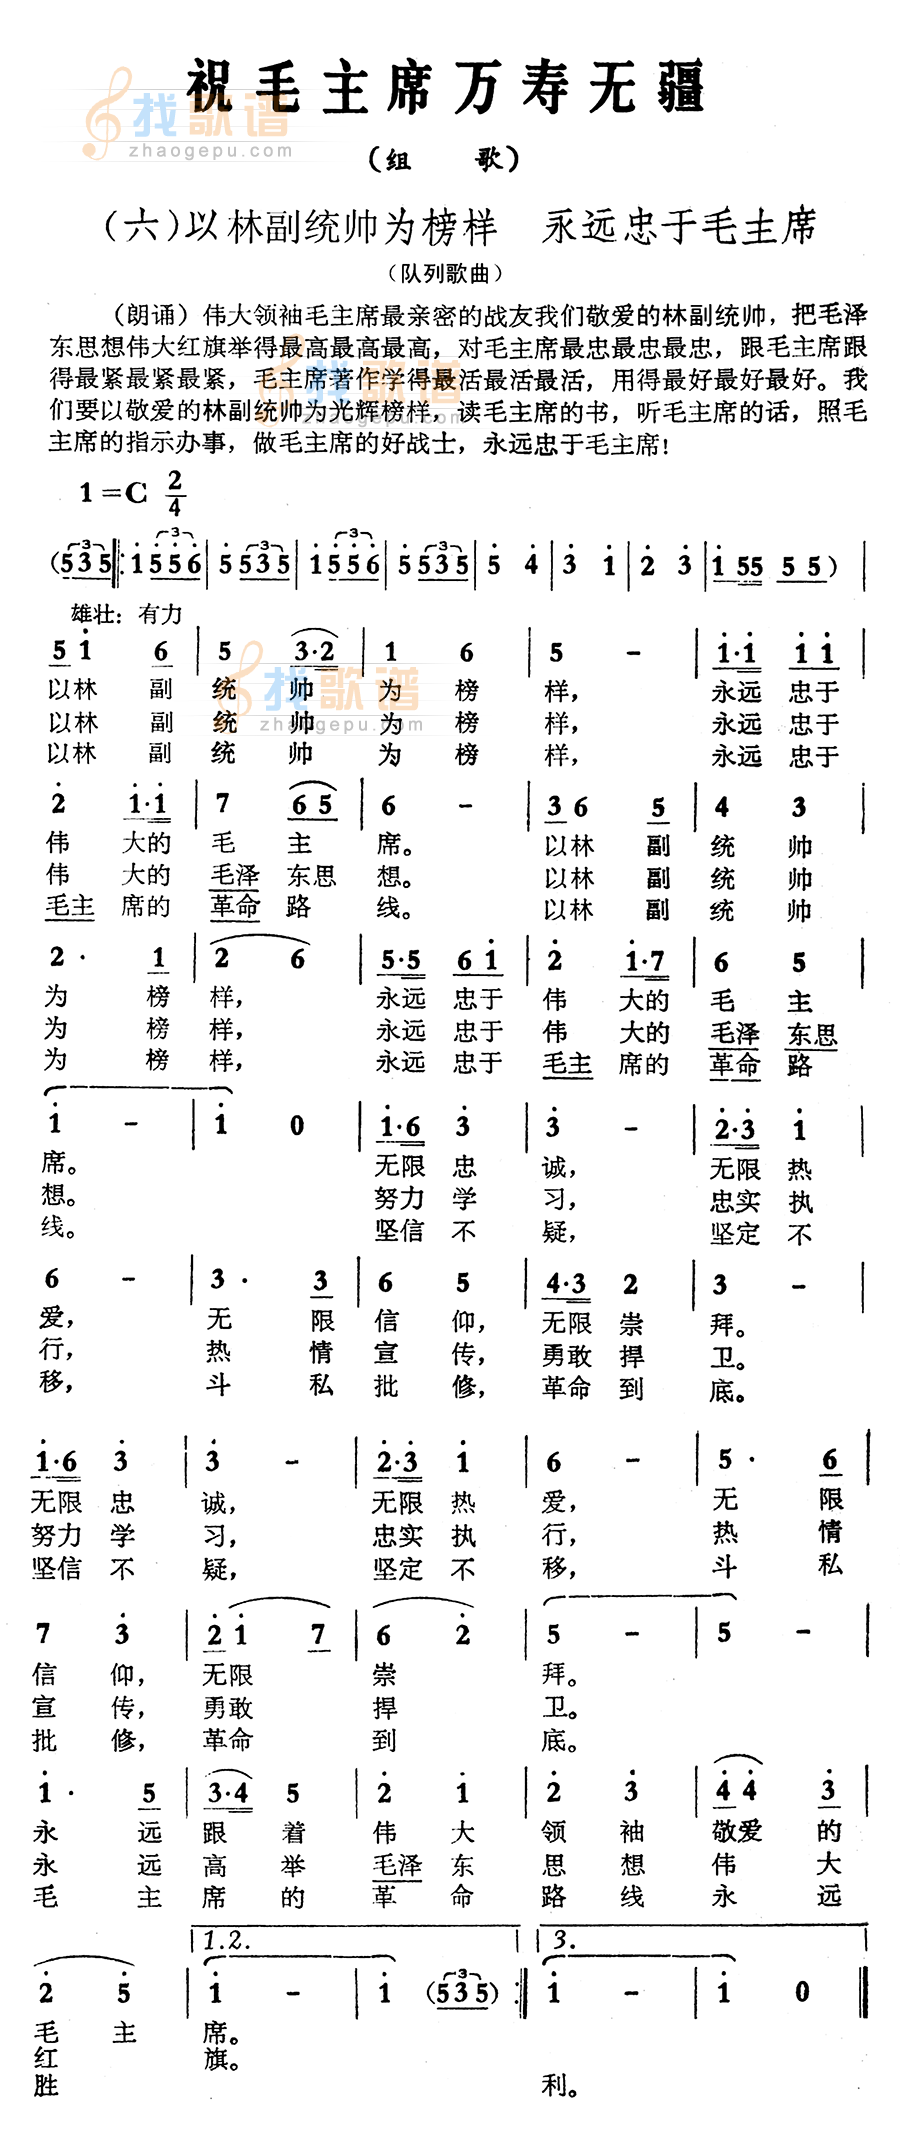 祝毛主席万寿无疆
找歌谱
zhaogepu.com
（组 歌）
（六）以林副统帅为榜样 永远忠于毛主席
（队列歌曲）
（朗诵）伟大领袖毛主席最亲密的战友我们敬爱的林副统帅，把毛泽
东思想伟大红旗举得最高最高最高，对毛主席最忠最忠最忠，跟毛主席跟
得最紧最紧最紧，毛主席著作学得最活最活最活，用得最好最好最好。我
们要以敬爱的林副统帅为光辉榜样，读毛主席的书，听毛主席的话，照毛
主席的指示办事，做毛主席的好战士，永远忠于毛主席！
1=C 2/4
(535 |: 1 5 5 6 | 5 535 | 1 5 5 6 | 5 535 | 5 4 | 3 1 | 2 3 | 1 55 5 5) |
雄壮：有力
5 1 6 | 5 3·2 | 1 6 | 5 - | 1·1 1 1 |
以林 副 统 帅 为 榜 样， 永远 忠于
以林 副 统 帅 为 榜 样， 永远 忠于
以林 副 统 帅 为 榜 样， 永远 忠于
找歌谱
zhaogepu.com
2 1·1 | 7 6 5 | 6 - | 3 6 5 | 4 3 |
伟 大的 毛 主 席。 以林 副 统 帅
伟 大的 毛泽 东思 想。 以林 副 统 帅
毛主 席的 革命 路 线。 以林 副 统 帅
2· 1 | 2 6 | 5·5 6 1 | 2 1·7 | 6 5 |
为 榜 样， 永远 忠于 伟 大的 毛 主
为 榜 样， 永远 忠于 伟 大的 毛泽 东思
为 榜 样， 永远 忠于 毛主 席的 革命 路
1 - | 1 0 | 1·6 3 | 3 - | 2·3 1 |
席。 无限 忠 诚， 无限 热
想。 努力 学 习， 忠实 执
线。 坚信 不 疑， 坚定 不
6 - | 3· 3 | 6 5 | 4·3 2 | 3 - |
爱， 无 限 信 仰， 无限 崇 拜。
行， 热 情 宣 传， 勇敢 捍 卫。
移， 斗 私 批 修， 革命 到 底。
1·6 3 | 3 - | 2·3 1 | 6 - | 5· 6 |
无限 忠 诚， 无限 热 爱， 无 限
努力 学 习， 忠实 执 行， 热 情
坚信 不 疑， 坚定 不 移， 斗 私
7 3 | 2 1 7 | 6 2 | 5 - | 5 - |
信 仰， 无限 崇 拜。
宣 传， 勇敢 捍 卫。
批 修， 革命 到 底。
1· 5 | 3·4 5 | 2 1 | 2 3 | 4 4 3 |
永 远 跟 着 伟 大 领 袖 敬爱 的
永 远 高 举 毛泽 东 思 想 伟 大
毛 主 席 的 革 命 路 线 永 远
1.2. 3.
2 5 | 1 - | 1 (535) :| 1 - | 1 0 ||
毛 主 席。
红 旗。
胜 利。